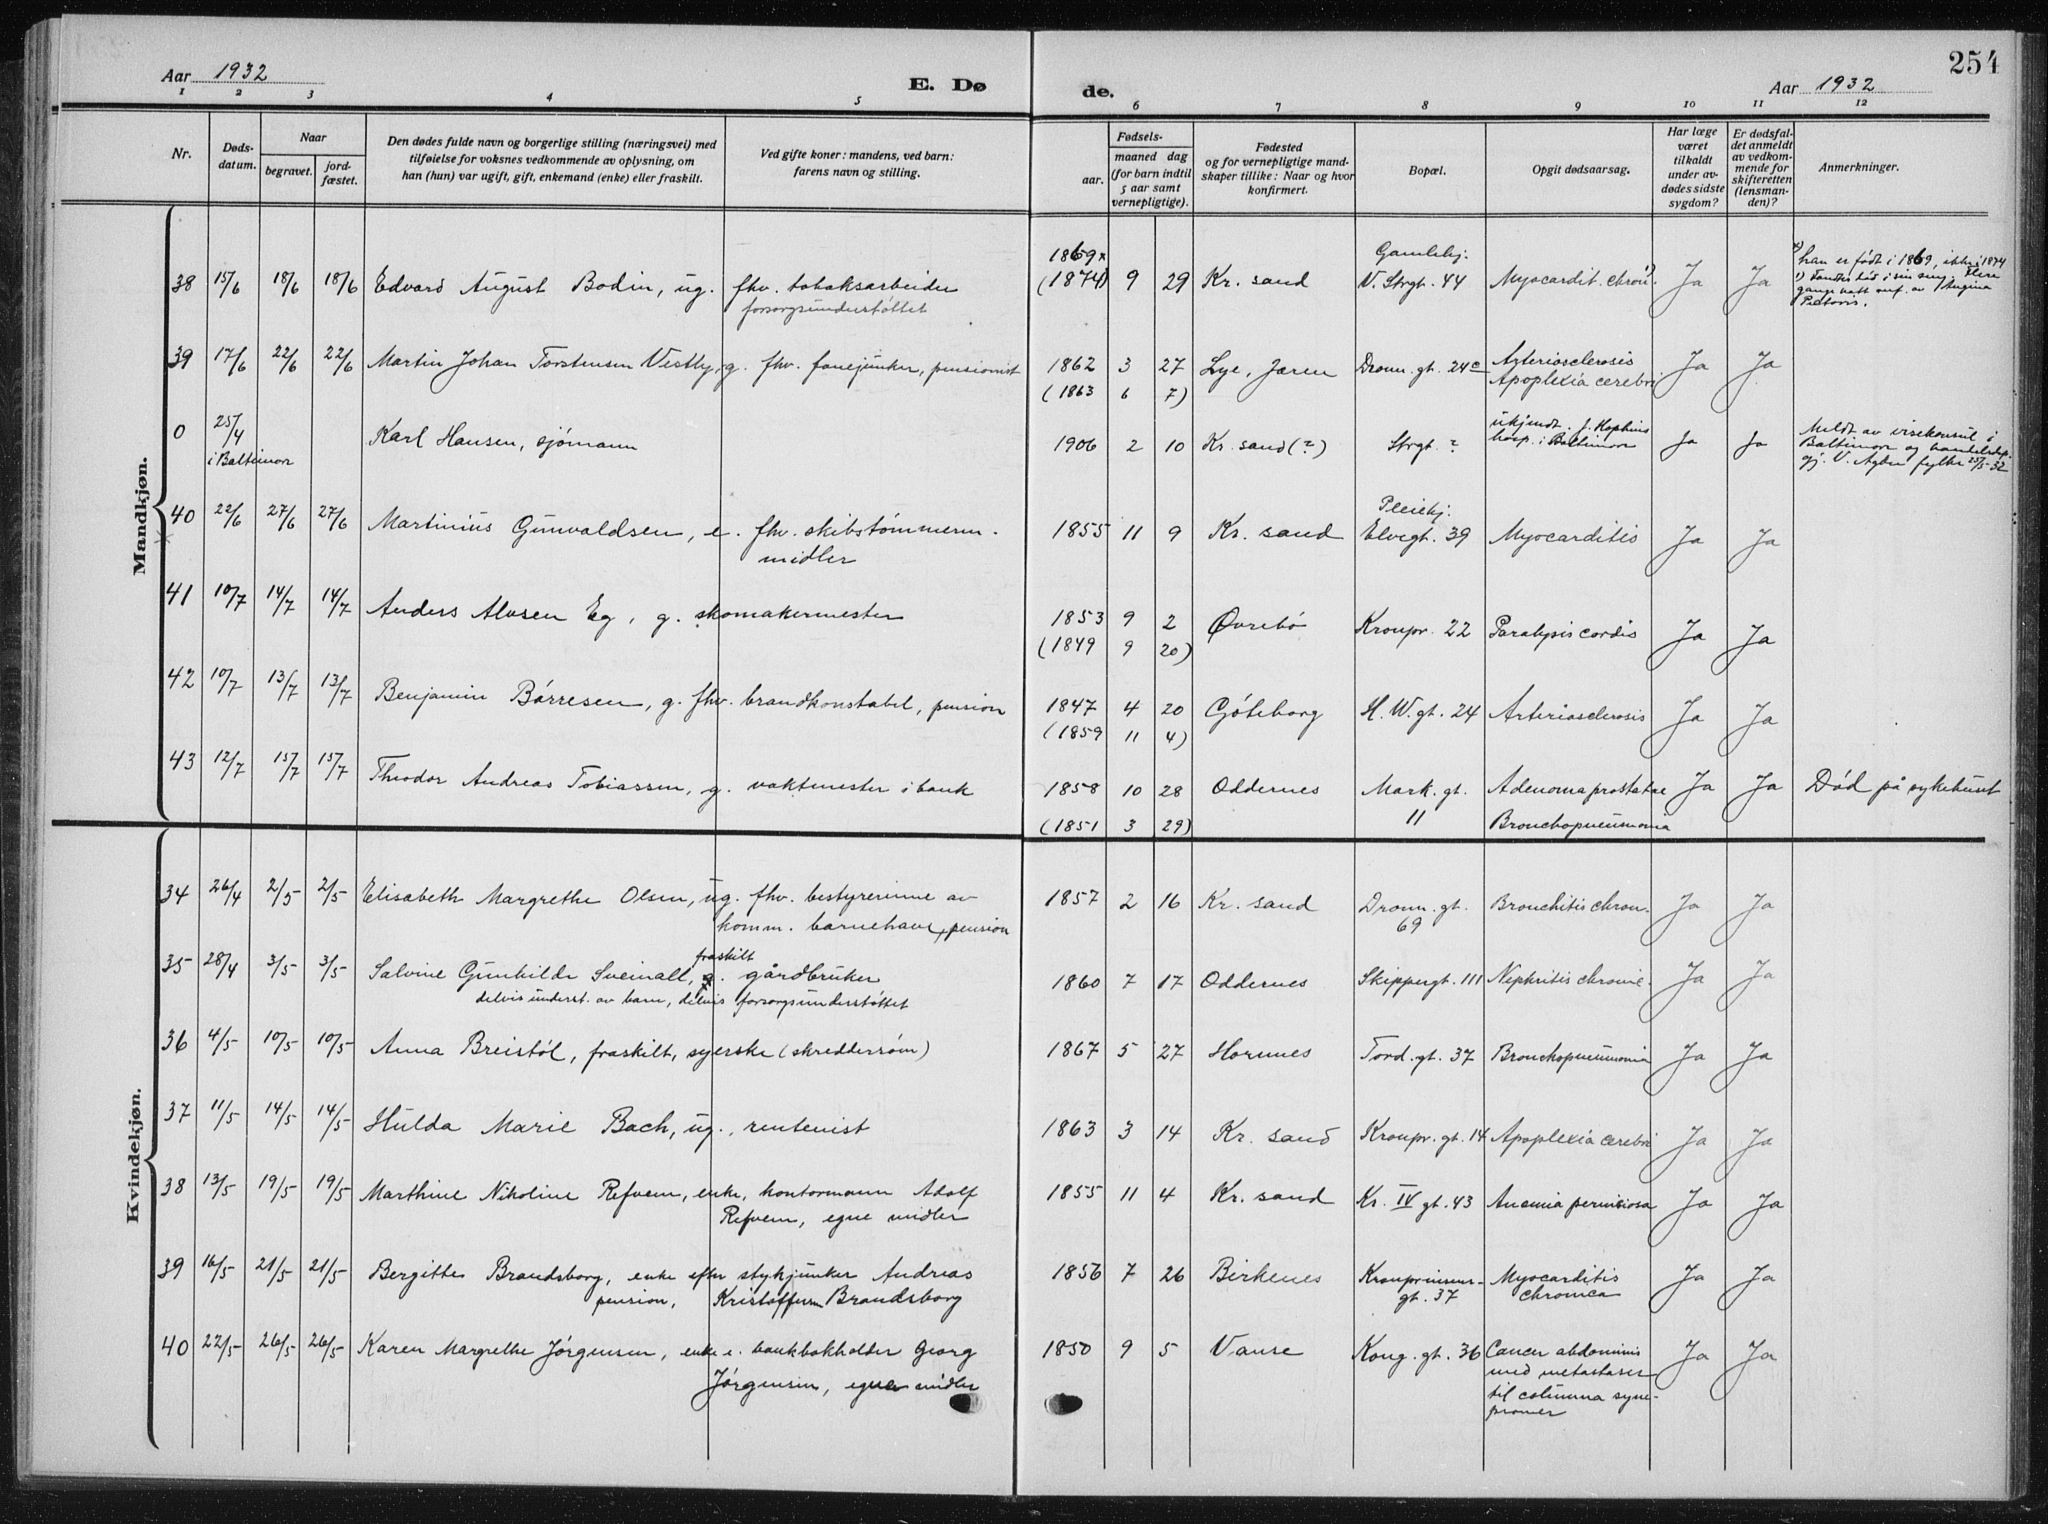 Aar 1932
E. Dø
de.
Aar 1932
254
1 2 3 4 5 6 7 8 9 10 11 12
Nr.
Døds-
datum.
Naar
begravet.
jord-
fæstet.
Den dødes fulde navn og borgerlige stilling (næringsvei) med
tilføielse for voksnes vedkommende av oplysning, om
han (hun) var ugift, gift, enkemand (enke) eller fraskilt.
Ved gifte koner: mandens, ved barn:
farens navn og stilling.
Fødsels-
aar.
maaned dag
(for barn indtil
5 aar samt
vernepligtige).
Fødested
og for vernepligtige mand-
skaper tillike: Naar og hvor
konfirmert.
Bopæl.
Opgit dødsaarsag.
Har læge
været
tilkaldt
under av-
dødes sidste
sygdom?
Er dødsfal-
det anmeldt
av vedkom-
mende for
skifteretten
(lensman-
den)?
Anmerkninger.
Mandkjøn.
1869x Gamlehj. x) han er født i 1869, ikke i 1874
38 15/6 18/6 18/6 Edvard August Bodin, ug. fhv. tobaksarbeider (1874) 9 29 Kr. sand V. Strgt. 44 Myocardit. chron. 1) Ja Ja
forsorgsunderstøttet
1) Fandtes død i sin seng. Flere
gange hatt anf. av Angina
Pectoris.
39 17/6 22/6 22/6 Martin Johan Torstensen Vestly, g. fhv. fanejunker, pensionist 1862 3 27 Lye, Jæren Dronn. gt. 24c Arteriosclerosis Ja Ja
(1863 6 7) Apoplexia cerebri
0 25/4 Karl Hansen, sjømann 1906 2 10 Kr. sand (?) Strgt. ? ukjendt. J. Hopkins Ja Ja Meldt av visekonsul i
i Baltimore hosp. i Baltimore Baltimore og handelsdep.
gj. V. Agder fylke 25/5-32
Pleiehj.
40 22/6 27/6 27/6 Martinius Gunvaldsen, e. fhv. skibstømmerm. 1855 11 9 Kr. sand Elvegt. 39 Myocarditis Ja Ja
midler
41 10/7 14/7 14/7 Anders Alvsen Eg, g. skomakermester 1853 9 2 Øvrebø Kronpr. 22 Paralysis cordis Ja Ja
(1849 9 20)
42 10/7 13/7 13/7 Benjamin Børresen, g. fhv. brandkonstabel, pension 1847 4 20 Gøteborg H. W. gt. 24 Arteriosclerosis Ja Ja
(1859 11 4)
43 12/7 15/7 15/7 Theodor Andreas Tobiassen, g. vaktmester i bank 1858 10 28 Oddernes Mark. gt. Adenoma prostatae Ja Ja Død på sykehuset
(1851 3 29) 11 Bronchopneumonia
Kvindekjøn.
34 26/4 2/5 2/5 Elisabeth Margrethe Olsen, ug. fhv. bestyrerinne av 1857 2 16 Kr. sand Dronn. gt. Bronchitis chron. Ja Ja
komm. barnehave, pension 69
fraskilt
35 28/4 3/5 3/5 Salvine Gunhilde Sveinall, g. gårdbruker 1860 7 17 Oddernes Skippergt. 111 Nephritis chronic. Ja Ja
delvis underst. av barn, delvis forsorgsunderstøttet
36 4/5 10/5 10/5 Anna Breistøl, fraskilt, syerske (skreddersøm) 1867 5 27 Hornnes Tord. gt. 37 Bronchopneumonia Ja Ja
37 11/5 14/5 14/5 Hulda Marie Bach, ug., rentenist 1863 3 14 Kr. sand Kronpr. gt. 14 Apoplexia cerebri Ja Ja
38 13/5 19/5 19/5 Marthine Nikoline Refvem, enke, kontormann Adolf 1855 11 4 Kr. sand Kr. IV gt. 43 Anemia perniciosa Ja Ja
Refvem, egne midler
39 16/5 21/5 21/5 Bergitte Brandsborg, enke efter stykjunker Andreas 1856 7 26 Birkenes Kronprinsens- Myocarditis Ja Ja
pension, Kristoffersen Brandsborg gt. 37 chronica
40 22/5 26/5 26/5 Karen Margrethe Jørgensen, enke e. bankbokholder Georg 1850 9 5 Vanse Kong. gt. 36 Cancer abdominis Ja Ja
Jørgensen, egne midler med metastaser
til columna